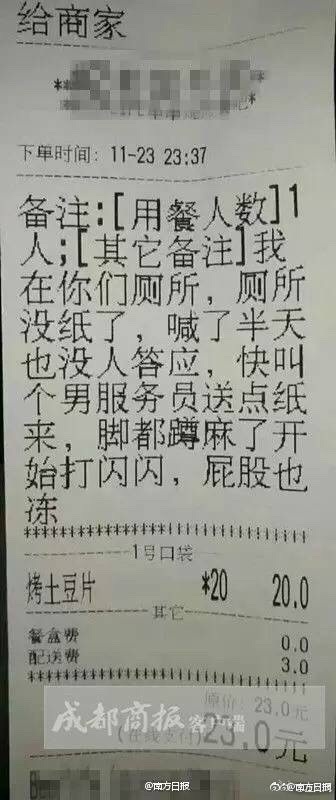 给商家
下单时间: 11-23 23:37
备注:[用餐人数]1
人;[其它备注]我
在你们厕所，厕所
没纸了，喊了半天
也没人答应，快叫
个男服务员送点纸
来，脚都蹲麻了开
始打闪闪，屁股也
冻
1号口袋
烤土豆片 *20 20.0
其它
餐盒费 0.0
配送费 3.0
原价: 23.0元
(在线支付)23.0元
成都商报客户端
@南方日报 @南方日报